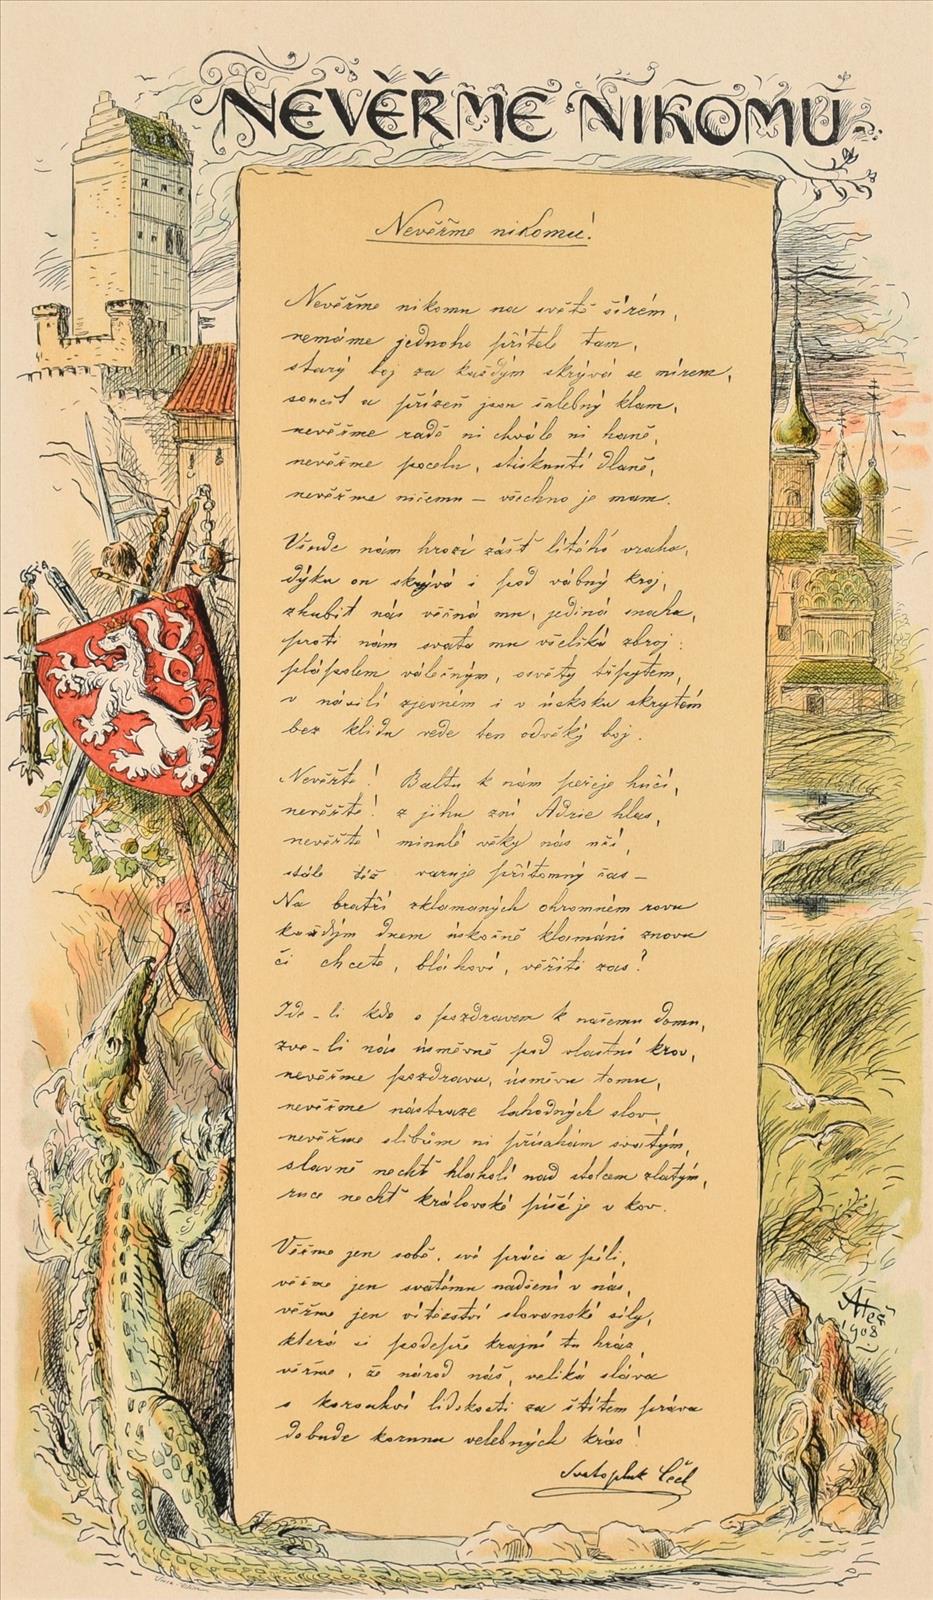 NEVĚŘME NIKOMU
Nevěřme nikomu!
Nevěřme nikomu na světě širém,
nemáme jednoho přítele tam,
starý boj za každým skrývá se mírem,
soucit a přízeň jsou šalebný klam,
nevěřme radě ni chvále ni haně,
nevěřme pocelu, stisknutí dlaně,
nevěřme ničemu — všechno je mam.
Všude nám hrozí zášť lítého vraha,
dýku on skrývá i pod vábný kroj,
zhubit nás věčná mu, jediná snaha,
proti nám svata mu všeliká zbroj:
plápolem válečným, osvěty třpytem,
v násilí zjevném i v úskoku skrytém
bez klidu vede ten odvěký boj.
Nevěřte! Baltu k nám peřeje hučí,
nevěřte! z jihu zní Adrie hlas,
nevěřte! minulé věky nás učí,
stále též varuje přítomný čas —
Na bratří zklamaných ohromném rovu
každým dnem úskočně klamáni znovu
či chcete, bláhoví, věřiti zas?
Jde-li kdo s pozdravem k našemu domu,
zve-li nás úsměvně pod vlastní krov,
nevěřme pozdravu, úsměvu tomu,
nevěřme nástraze lahodných slov,
nevěřme slibům ni přísahám svatým,
slavně nechť hlaholí nad stolcem zlatým,
ruce nechť královské píší je v kov.
Věřme jen sobě, své práci a píli,
věřme jen svatému nadšení v nás,
věřme jen vítězství slovanské síly,
která si podepře krajní tu hráz,
věřme, že národ náš, veliká sláva
s korouhví lidskosti za štítem práva
dobude korunu velebných krás!
Svatopluk Čech
Aleš
1908